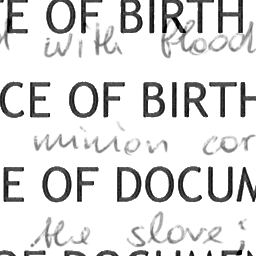 E OF BIRTH
with blood
CE OF BIRTH
minion cor
E OF DOCUM
the slove;
OF DOCUMEN